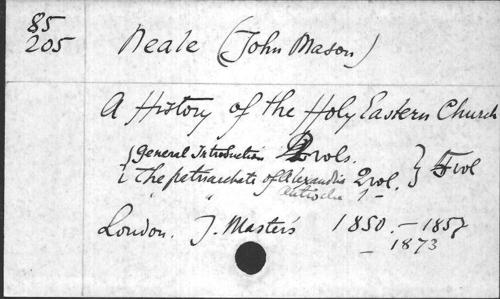 85
205
Neale (John Mason)
A History of the Holy Eastern Church
{ General Introduction 2 vols. } 5 vol
{ The patriarchate of Alexandria 2 vol.
" " Antioch 1 -
London. J. Masters 1850. - 1857
- 1873